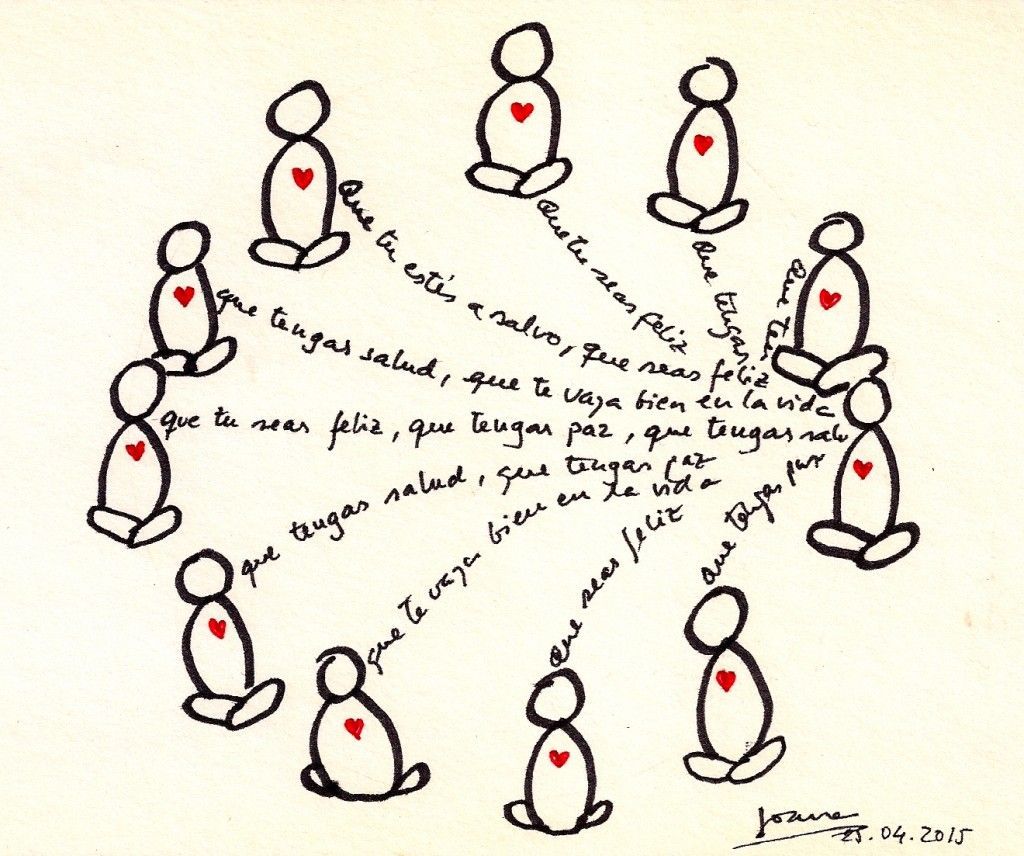 Que tu estés a salvo, que seas feliz
Que tu seas feliz
Que tengas
Que
que tengas salud, que te vaya bien en la vida
que tu seas feliz, que tengas paz, que tengas
que tengas salud, que tengas paz
que te vaya bien en la vida
Que seas feliz
Que tengas
25.04.2015